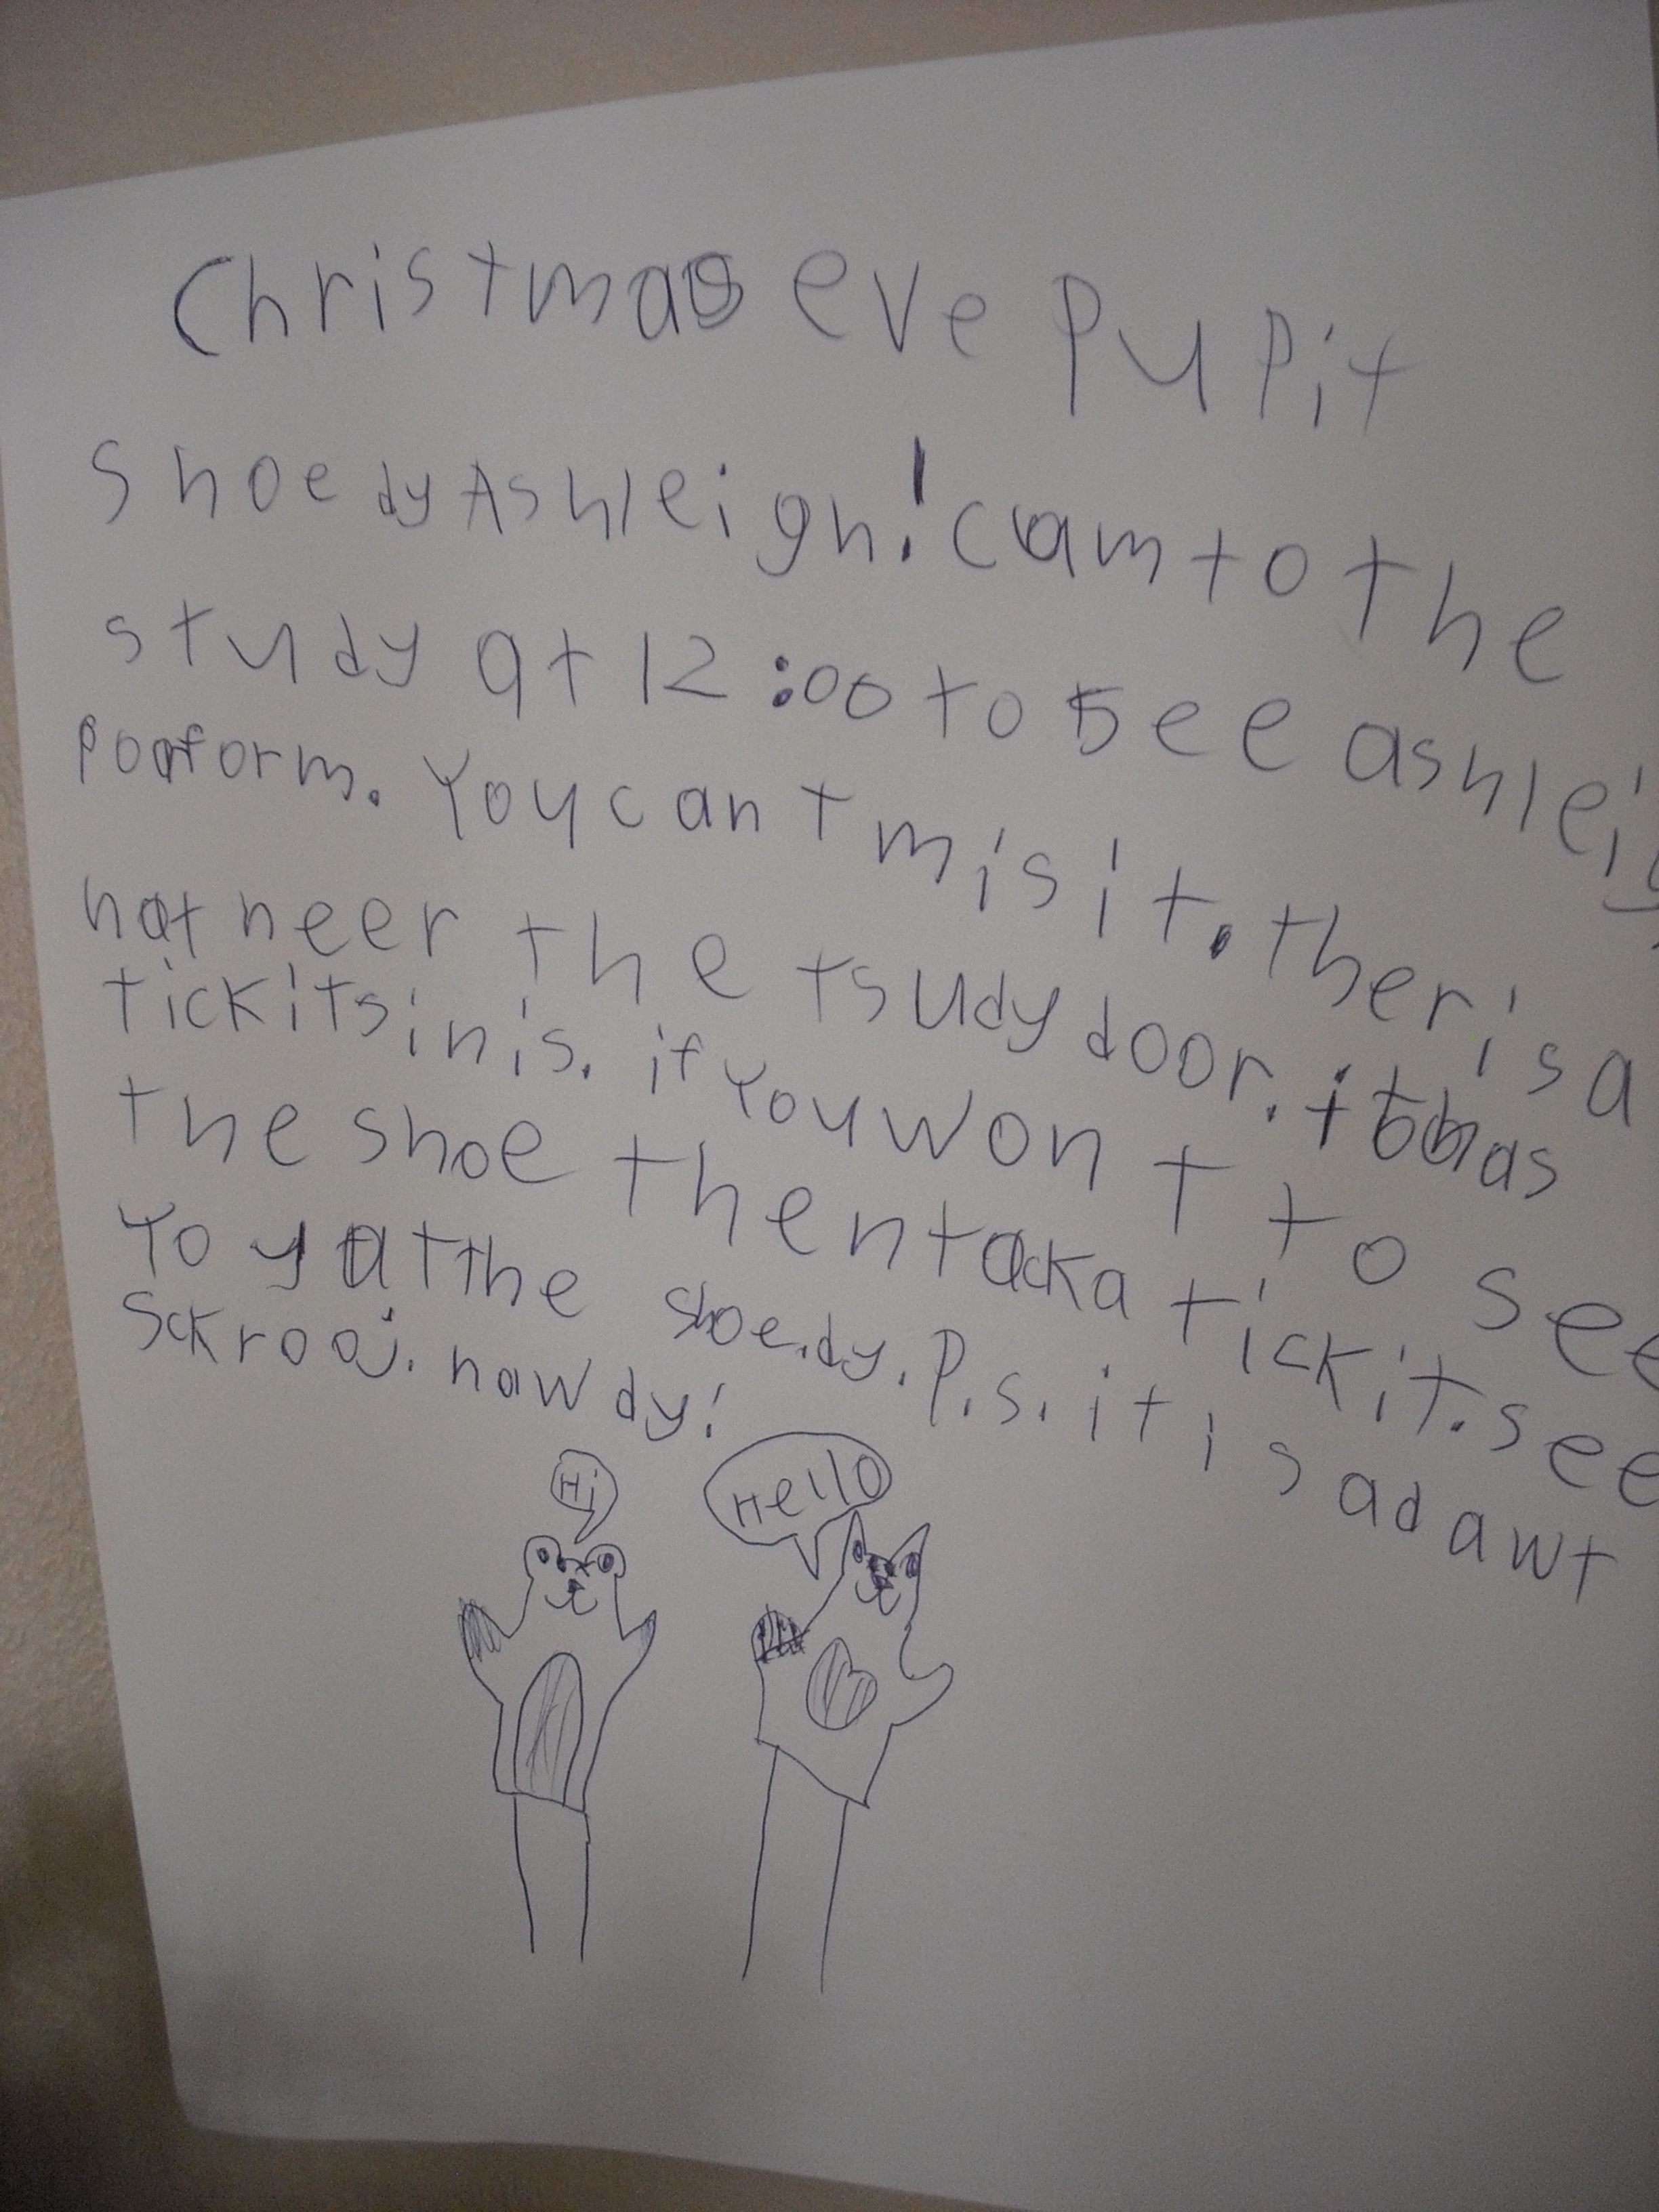 Christmas eve Pupit
Shoe dy Ashleigh! cam to the
study at 12:00 to see ashleig
poorform. You cant mis it. ther is a
hat neer the tsudy door. it has
tickits in is. if You wont to see
the shoe then tacka tickit. see
Yo y at the shoe.dy. P.s. it is adawt
Sckrooj. nowdy!
Hi
Hello